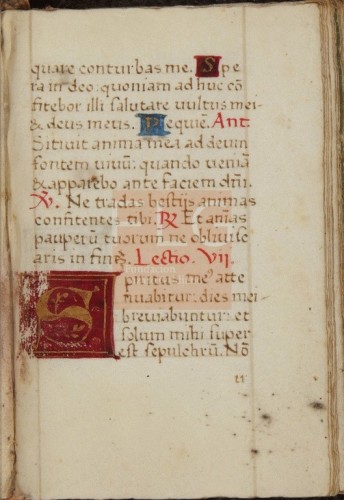 quare conturbas me. Spe
ra in deo. quoniam adhuc cō
fitebor illi salutare vultus mei
& deus meus. Requiē. Ant.
Sitivit anima mea ad deum
fontem vivū: quando veniā
& apparebo ante faciem dn̄i.
℣. Ne tradas bestijs animas
confitentes tibi. ℟. Et anīas
pauperū tuorum ne oblivisc
aris in finē. Lectio. VII.
Spiritus meꝰ atte
nuabitur: dies mei
breviabuntur: et
solum mihi super
est sepulchrū. Nō
Fundación